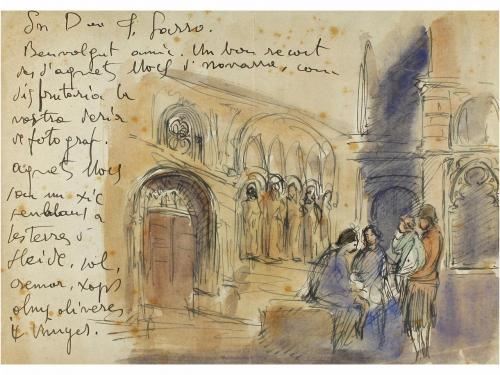 Sr Don F. Sarro.
Benvolgut amic. Un bon record
des d'aquets llocs d'navarra, com
disfrutaria la
vostra deria
de fotograf.
aquets llocs
son un xic
semblans a
les terres d
Lleida, sol,
, xops
olms oliveres
i vinyes.